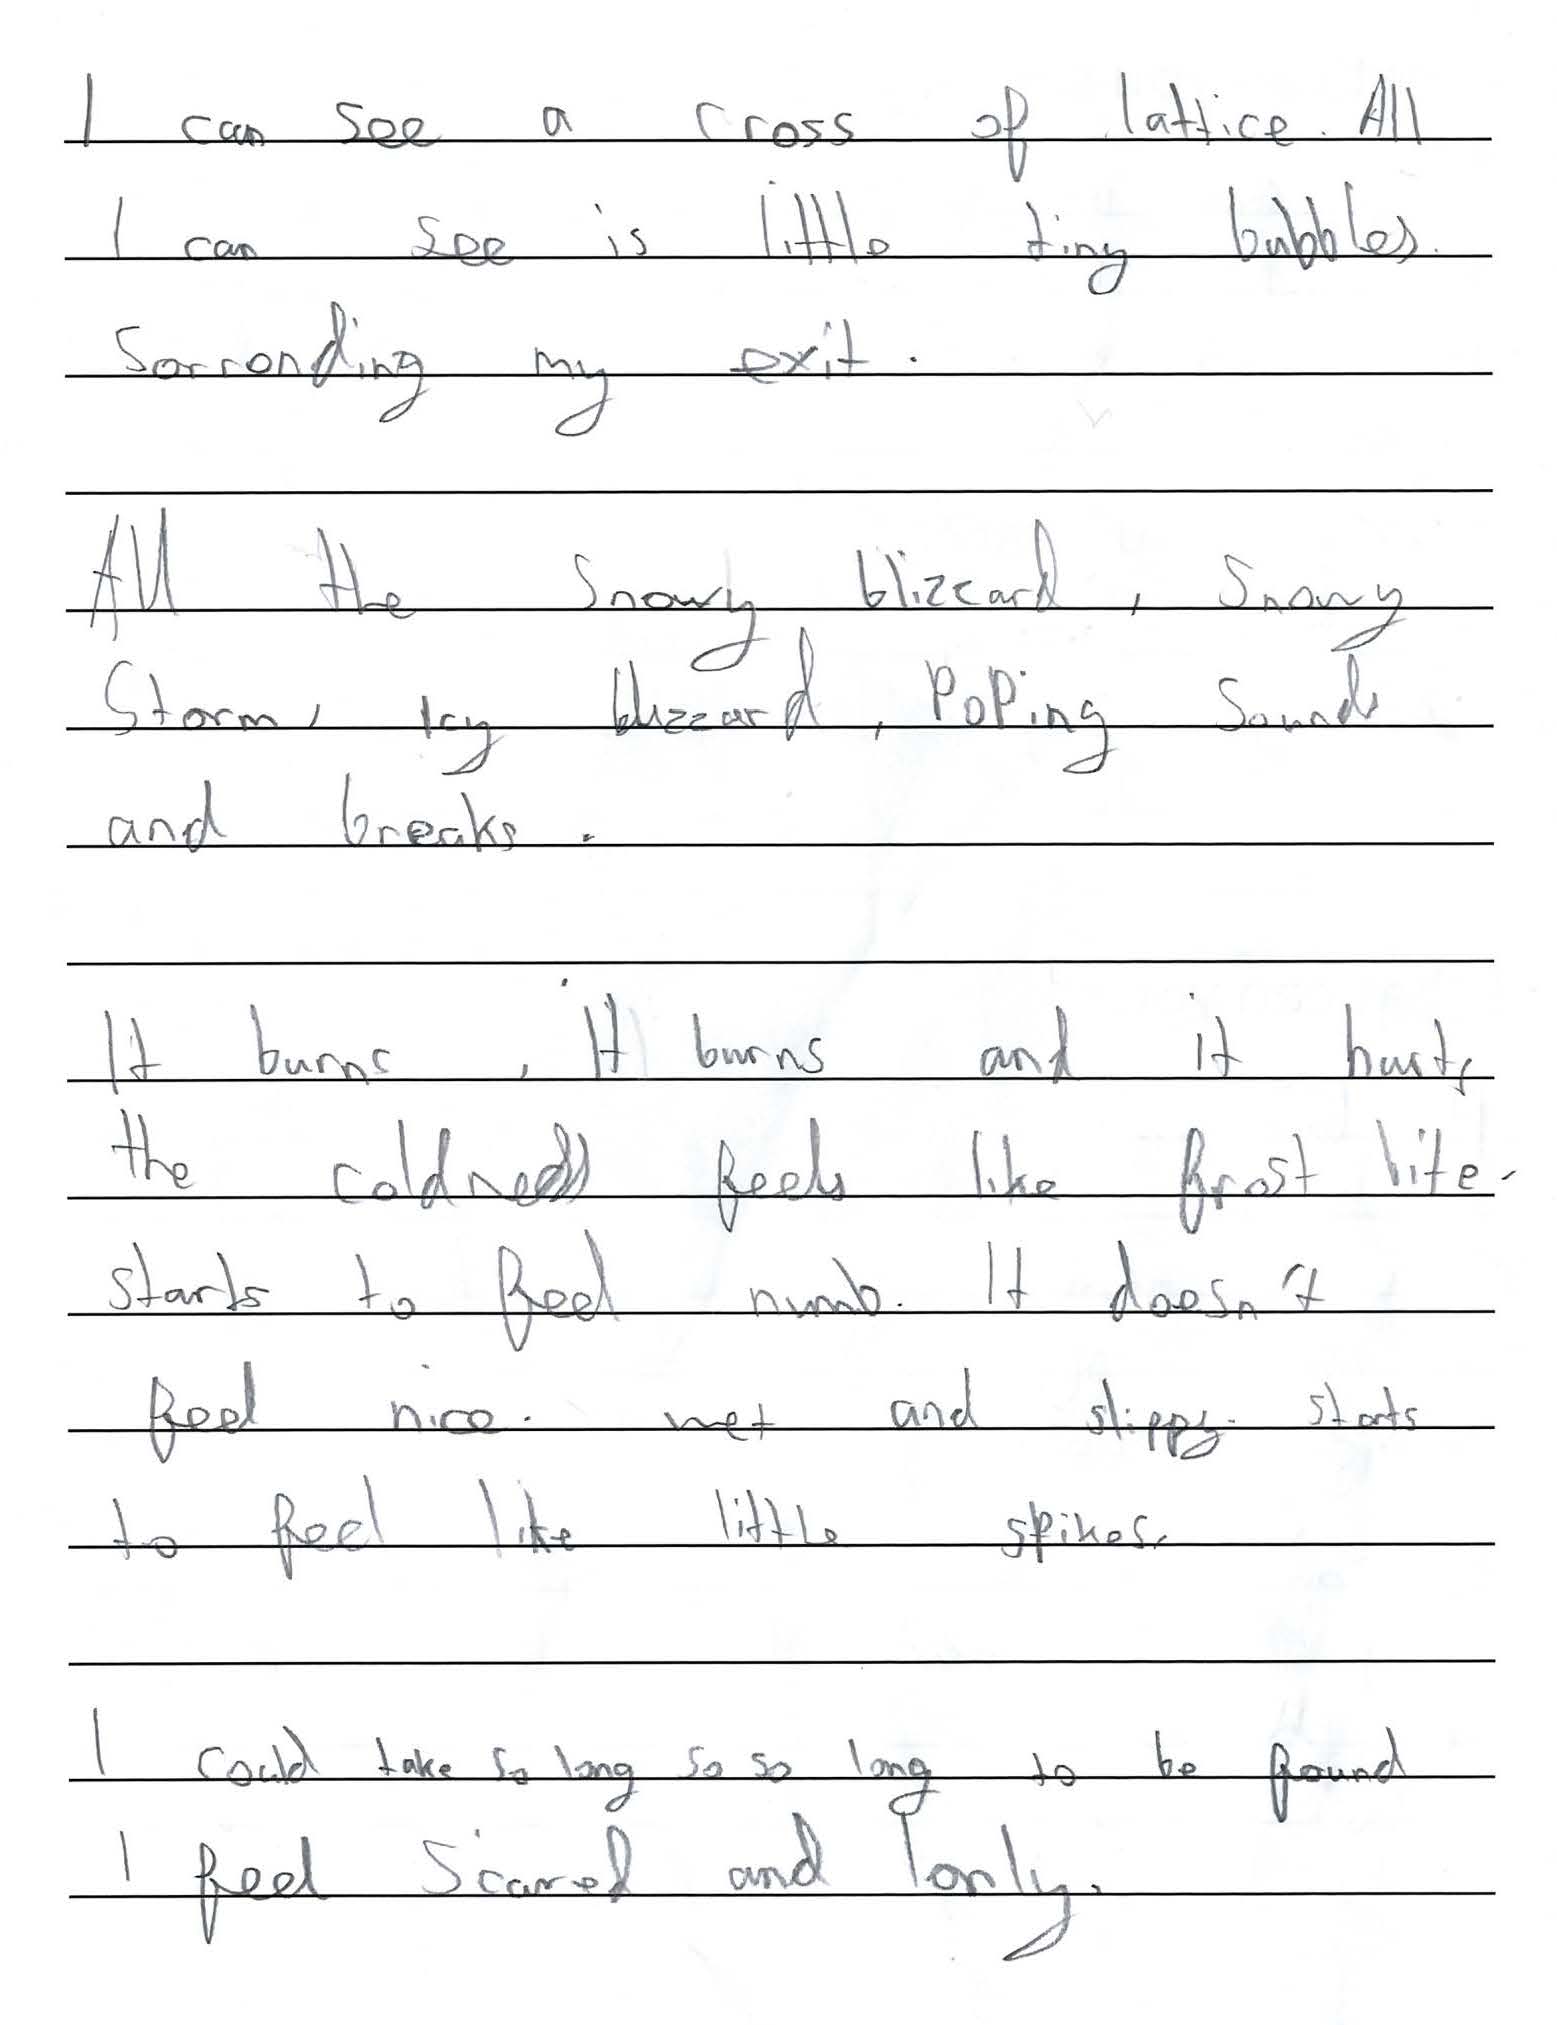 I can see a cross of lattice. All
I can see is little tiny bubbles.
Sorronding my exit.
All the Snowy blizcard, Snowy
Storm, Icy blizzard, PoPing Sounds
and breaks.
It burns, It burns and it hurts
the coldness feels like frost bite.
starts to feel numb. It doesn't
feel nice. wet and slippy. starts
to feel like little spikes.
I could take so long so so long to be found
I feel Scared and lonly.